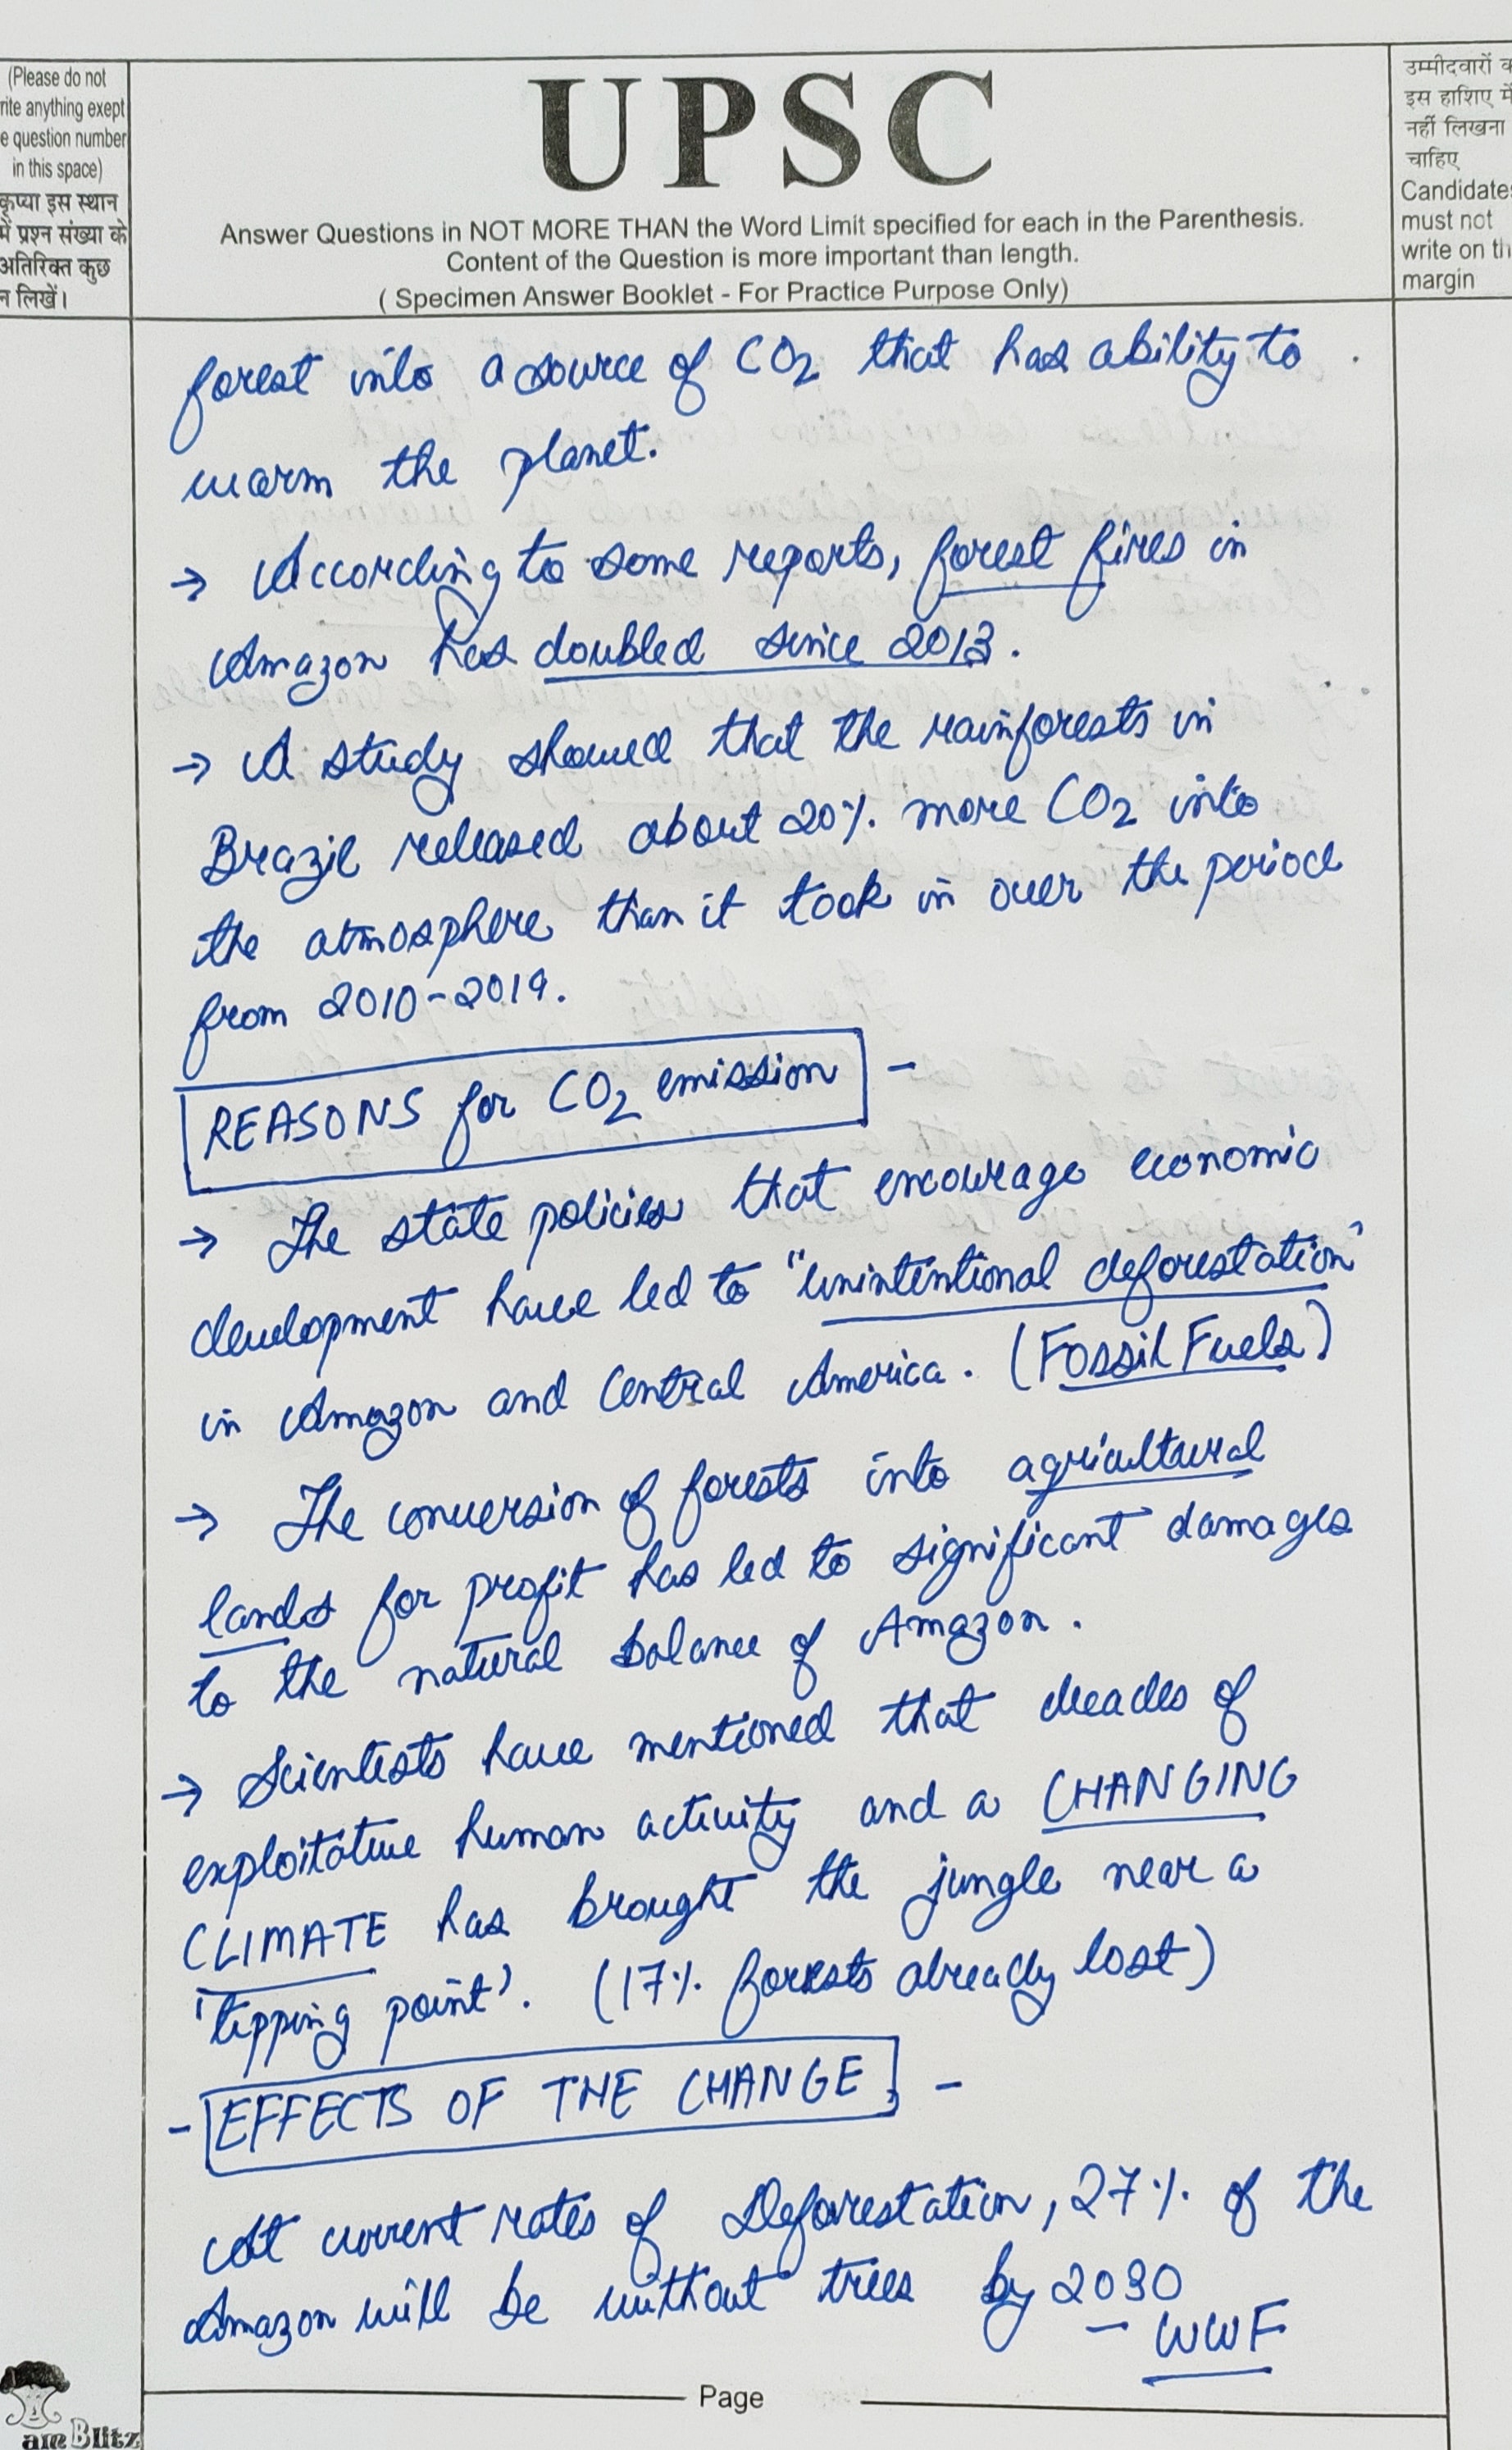 (Please do not
rite anything exept
e question number
in this space)
कृप्या इस स्थान
में प्रश्न संख्या के
अतिरिक्त कुछ
न लिखें।
UPSC
Answer Questions in NOT MORE THAN the Word Limit specified for each in the Parenthesis.
Content of the Question is more important than length.
( Specimen Answer Booklet - For Practice Purpose Only)
उम्मीदवारों
इस हाशिए में
नहीं लिखना
चाहिए
Candidates
must not
write on th
margin
forest into a source of CO2 that has ability to
warm the planet.
→ According to some reports, forest fires in
Amazon has doubled since 2013.
→ A study showed that the rainforests in
Brazil released about 20% more CO2 into
the atmosphere than it took in over the period
from 2010-2019.
REASONS for CO2 emission -
→ The state policies that encourage economic
development have led to "unintentional deforestation"
in Amazon and Central America. (Fossil Fuels)
→ The conversion of forests into agricultural
lands for profit has led to significant damages
to the natural balance of Amazon.
→ Scientists have mentioned that decades of
exploitative human activity and a CHANGING
CLIMATE has brought the jungle near a
'tipping point'. (17% forests already lost)
- EFFECTS OF THE CHANGE -
At current rates of Deforestation, 27% of the
Amazon will be without trees by 2030
- WWF
Page
am Blitz